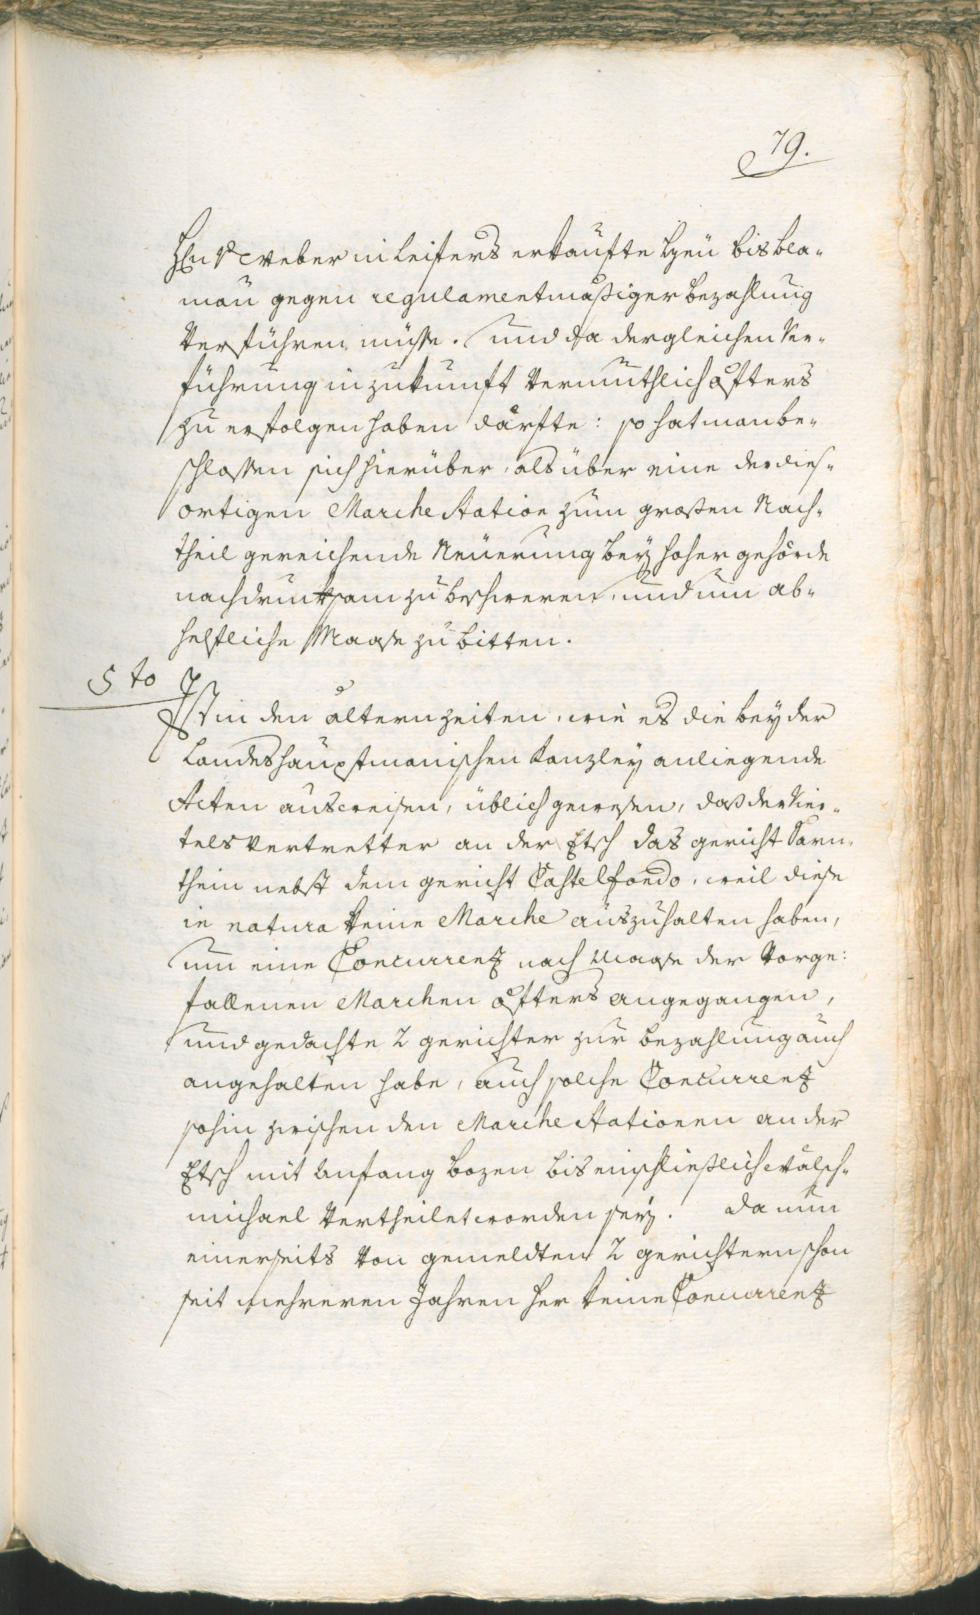 79.
Hrn v. Weber in Leifers erkaufte Heu bis Bla-
mau gegen regulamentmaßiger Bezahlung
verführen müsse. Und da dergleichen Ver-
führung in zukunft vermuthlich öfters
zu erfolgen haben därfte: so hat man be-
schlossen sich hierüber, als über eine der dies-
ortigen Marche Station zum großen Nach-
theil gereichende Neüerung bey hoher gehörde
nachdruksam zu beschweren, und um ab-
helfliche Maaße zu bitten.
5to
Ist in den ältern zeiten, wie es die bey der
Landeshauptmanischen Kanzley anliegende
Acten ausweisen, üblich gewesen, daß der Vier-
tels Vertretter an der Etsch das gericht Sarn-
thein nebst dem gericht Castelfondo, weil diese
in natura keine Marche auszuhalten haben,
um eine Concurrenz nach Maaße der Vorge-
fallenen Marchen öfters angegangen,
und gedachte 2 gerichter zur bezahlung auch
angehalten habe, auch solche Concurrenz
sohin zwischen den Marche Stationen an der
Etsch mit Anfang Bozen bis einschließlich Wälsch-
michael vertheilet worden sey. Da nun
einerseits von gemeldten 2 gerichtern schon
seit mehreren Jahren her keine Concurrenz